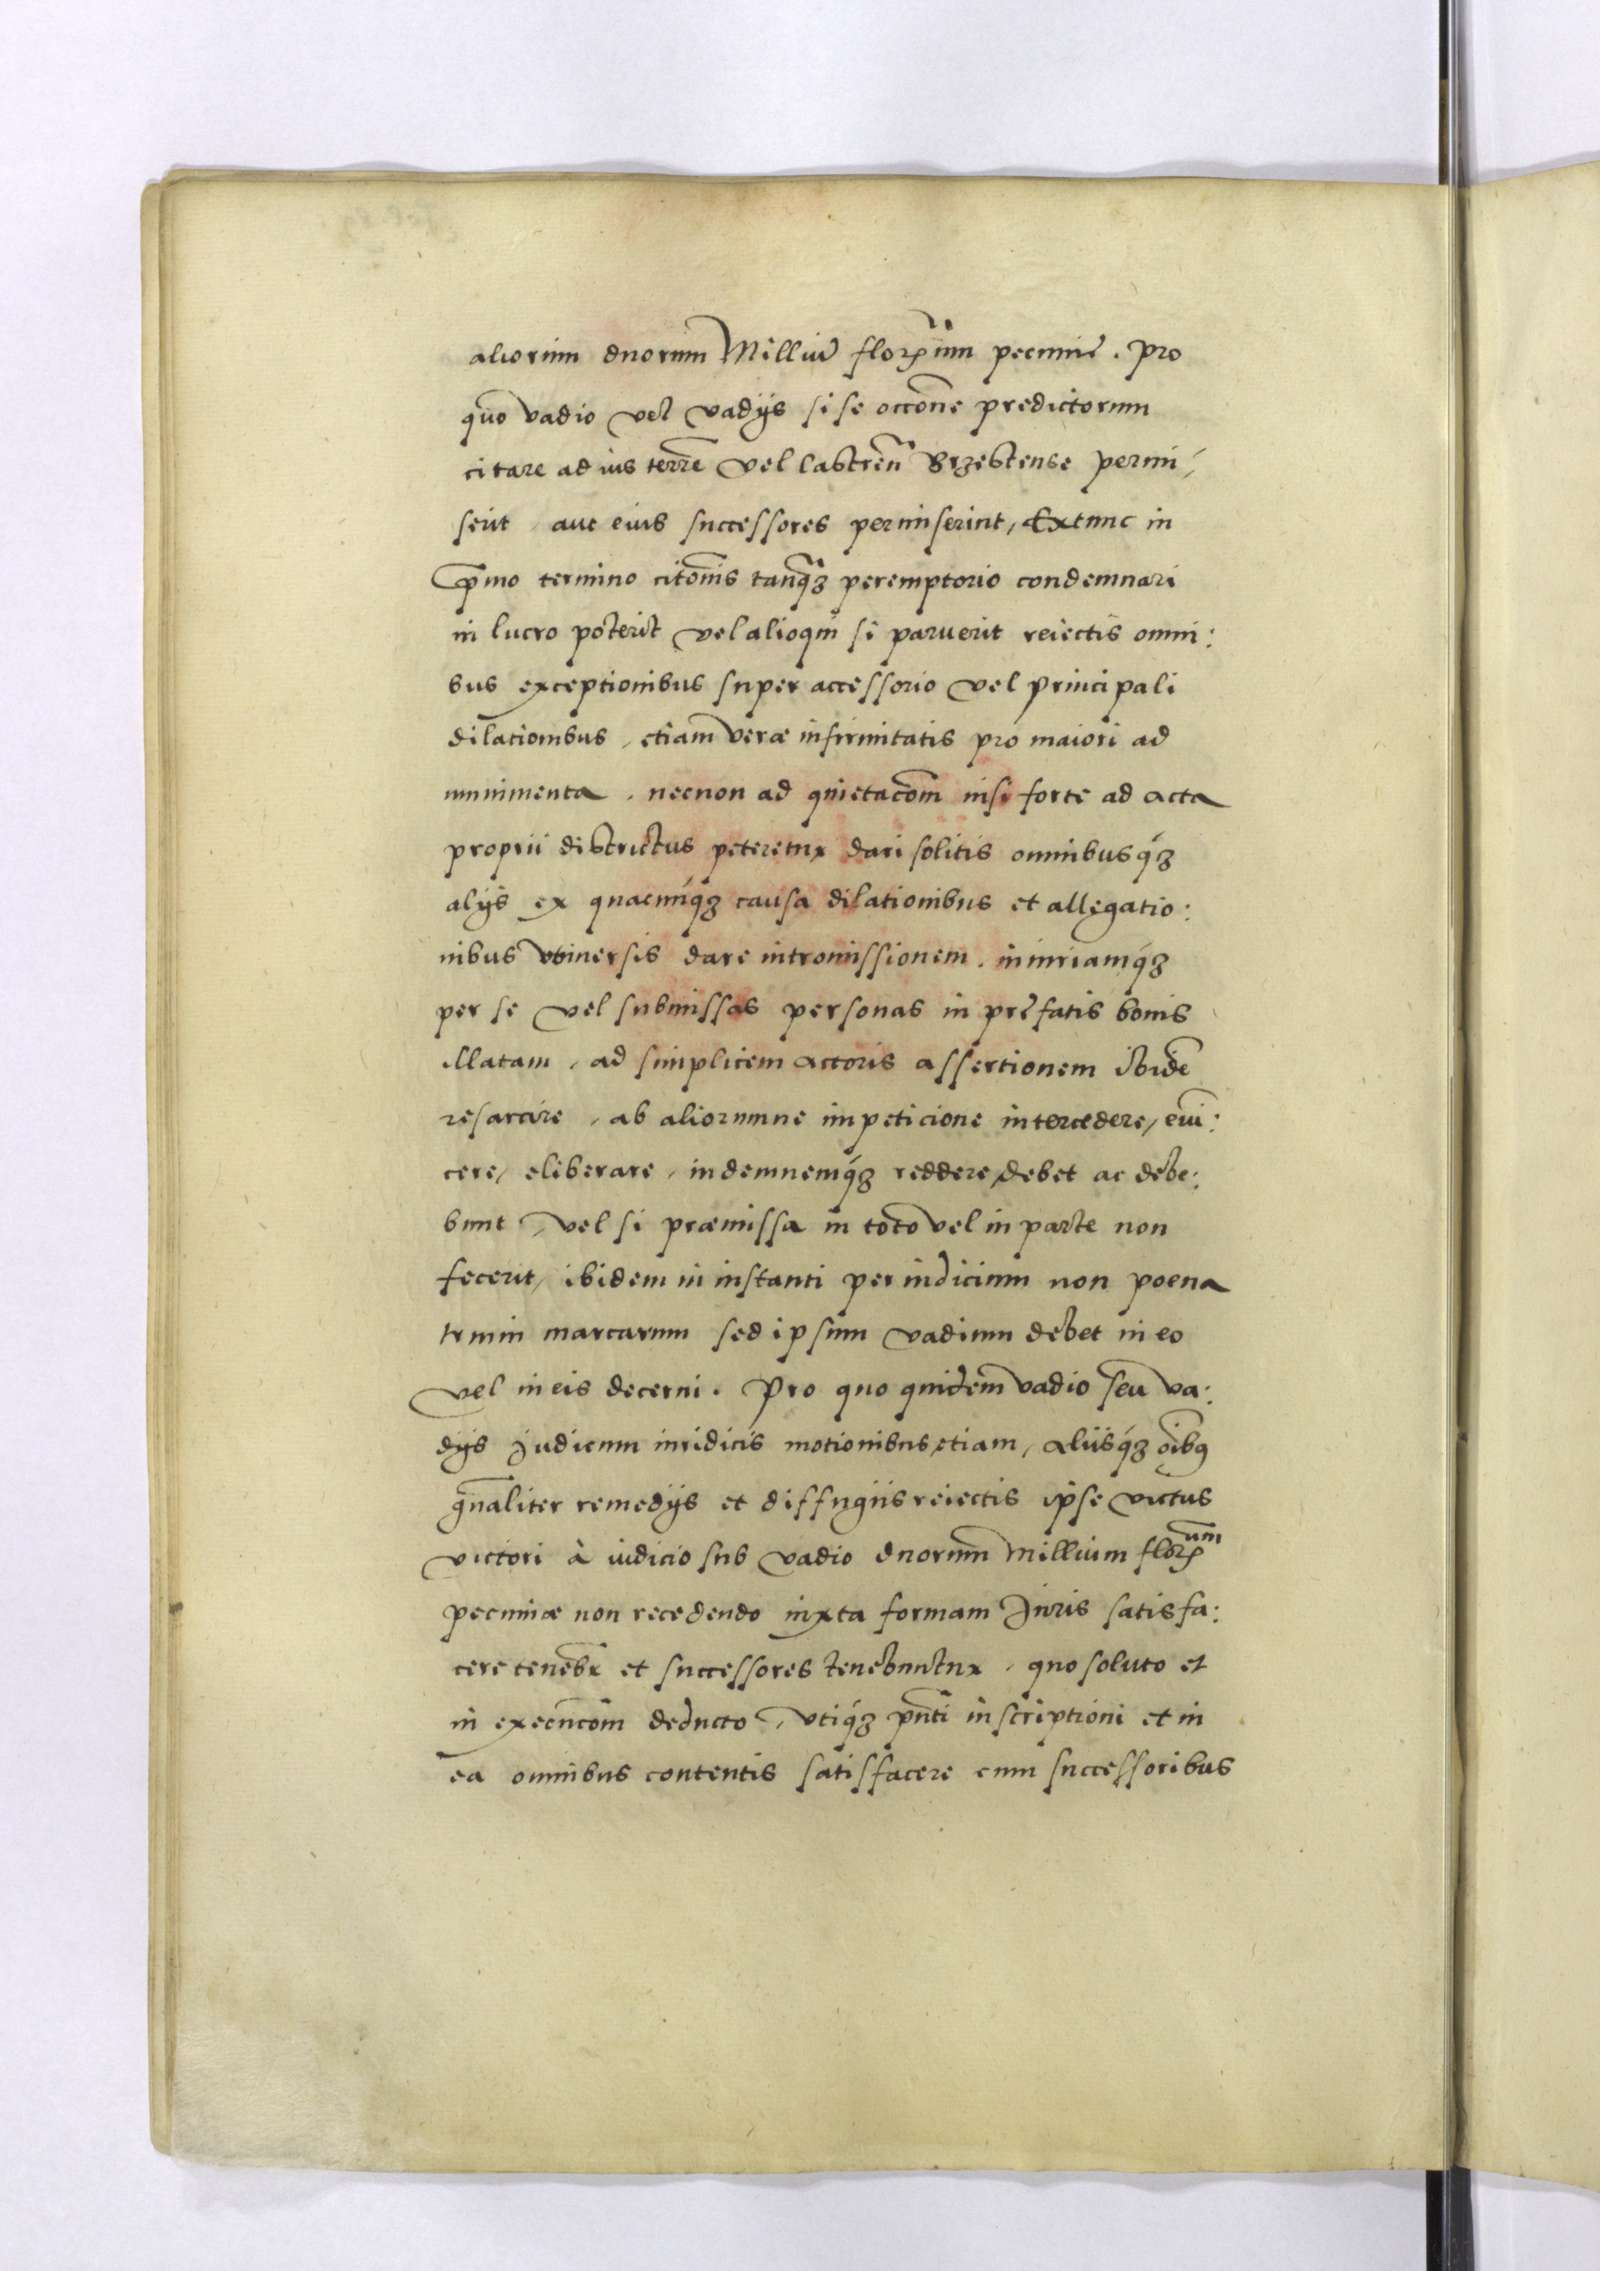 aliorum duorum Milliū florꝝum pecunie. Pro
quo vadio vel vadijs si se occōne predictorum
citare ad ius terrē vel Castrēn Brzestense permi,
serit, aut eius successores permiserint, Extunc in
p̄mo termino citōnis tanqꝫ peremptorio condemnari
in lucro poterit vel alioqui si paruerit reiectis omni:
bus exceptionibus super accessorio vel principali
dilationibus, etiam veræ infirmitatis pro maiori ad
munimenta, necnon ad quietacōm nisi forte ad acta
proprii districtus peteretur dari solitis omnibusqꝫ
alijs ex quacunqꝫ causa dilationibus et allegatio:
nibus vniuersis dare intromissionem, iniuriamqꝫ
per se vel submissas personas in prefatis bonis
illatam, ad simplicem actoris assertionem ibidē
resarcire, ab aliorumue impeticione intercedere, eui:
cere, eliberare, indemnemqꝫ reddere debet ac debe:
bunt, vel si præmissa in toto vel in parte non
fecerit, ibidem in instanti per iudicium non poena
trium marcarum sed ipsum vadium debet in eo
vel in eis decerni. Pro quo quidem vadio seu va:
dijs Judicum iuridicis motionibus etiam, aliisqꝫ oībꝯ
gn̄aliter remedijs et diffugiis reiectis ipse victus
victori à iudicio sub vadio duorum Millium florꝝum
pecuniæ non recedendo iuxta formam Juris satisfa:
cere tenebr̄ et successores tenebuntur, quo soluto et
in execucōm deducto, vtiqꝫ pn̄ti inscriptioni et in
ea omnibus contentis satisfacere cum successoribus